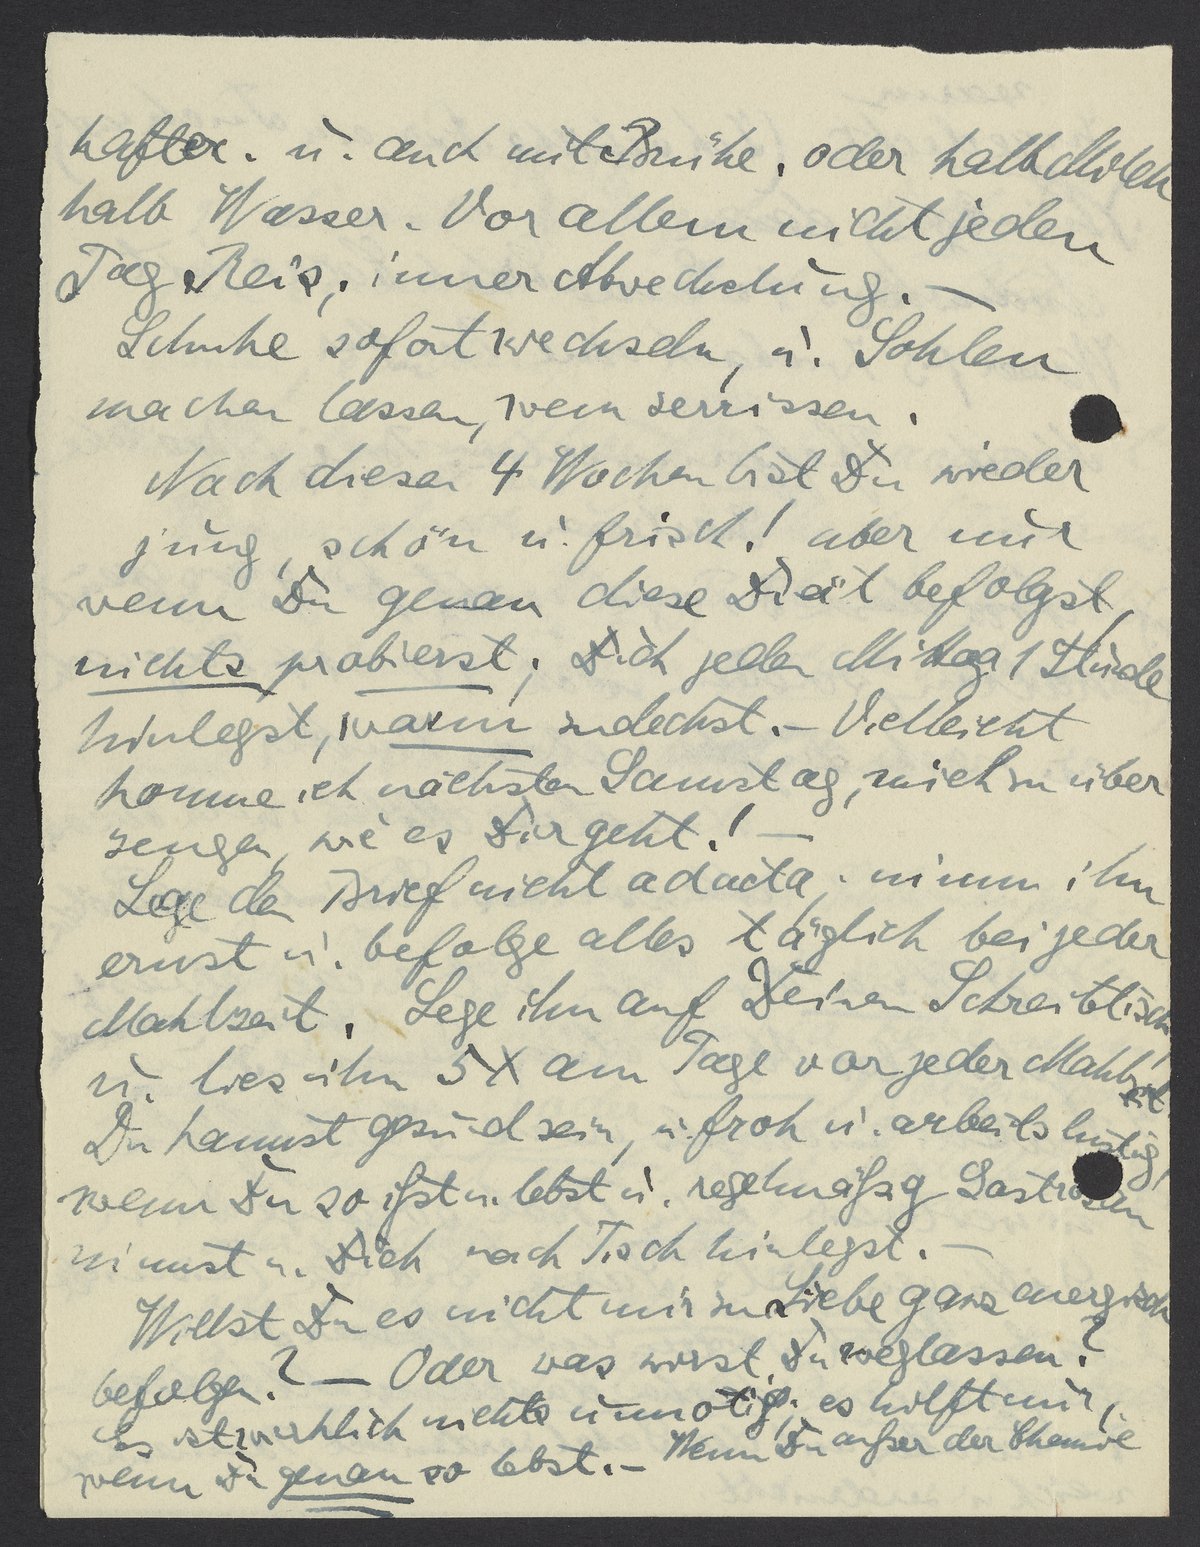 hafter. u. auch mit Brühe. oder halb Milch
halb Wasser. Vor allem nicht jeden
Tag Reis, immer Abwechslung. —
Schuhe sofort wechseln, u. Sohlen
machen lassen, wenn zerrissen.
Nach diesen 4 Wochen bist Du wieder
jung, schön u. frisch! aber nur
wenn Du genau diese Diät befolgst,
nichts probierst, Dich jeden Mittag 1 Stunde
hinlegst, warm zudeckst. – Vielleicht
komme ich nächsten Samstag, mich zu über
zeugen, wie es Dir geht! —
Lege den Brief nicht ad acta, nimm ihn
ernst u. befolge alles täglich bei jeder
Mahlzeit. Lege ihn auf Deinen Schreibtisch
u. lies ihn 5x am Tage vor jeder Mahlzeit
Du kannst gesund sein, u. froh u. arbeitslustig,
wenn Du so ißt u. lebst u. regelmäßig Gastrosan
nimmst u. Dich nach Tisch hinlegst. —
Willst Du es nicht mir zu Liebe ganz energisch
befolgen? — Oder was wirst Du weglassen?
Es ist wirklich nichts unnötig, es hilft nur,
wenn Du genau so lebst. – Wenn Du außer der Chemie